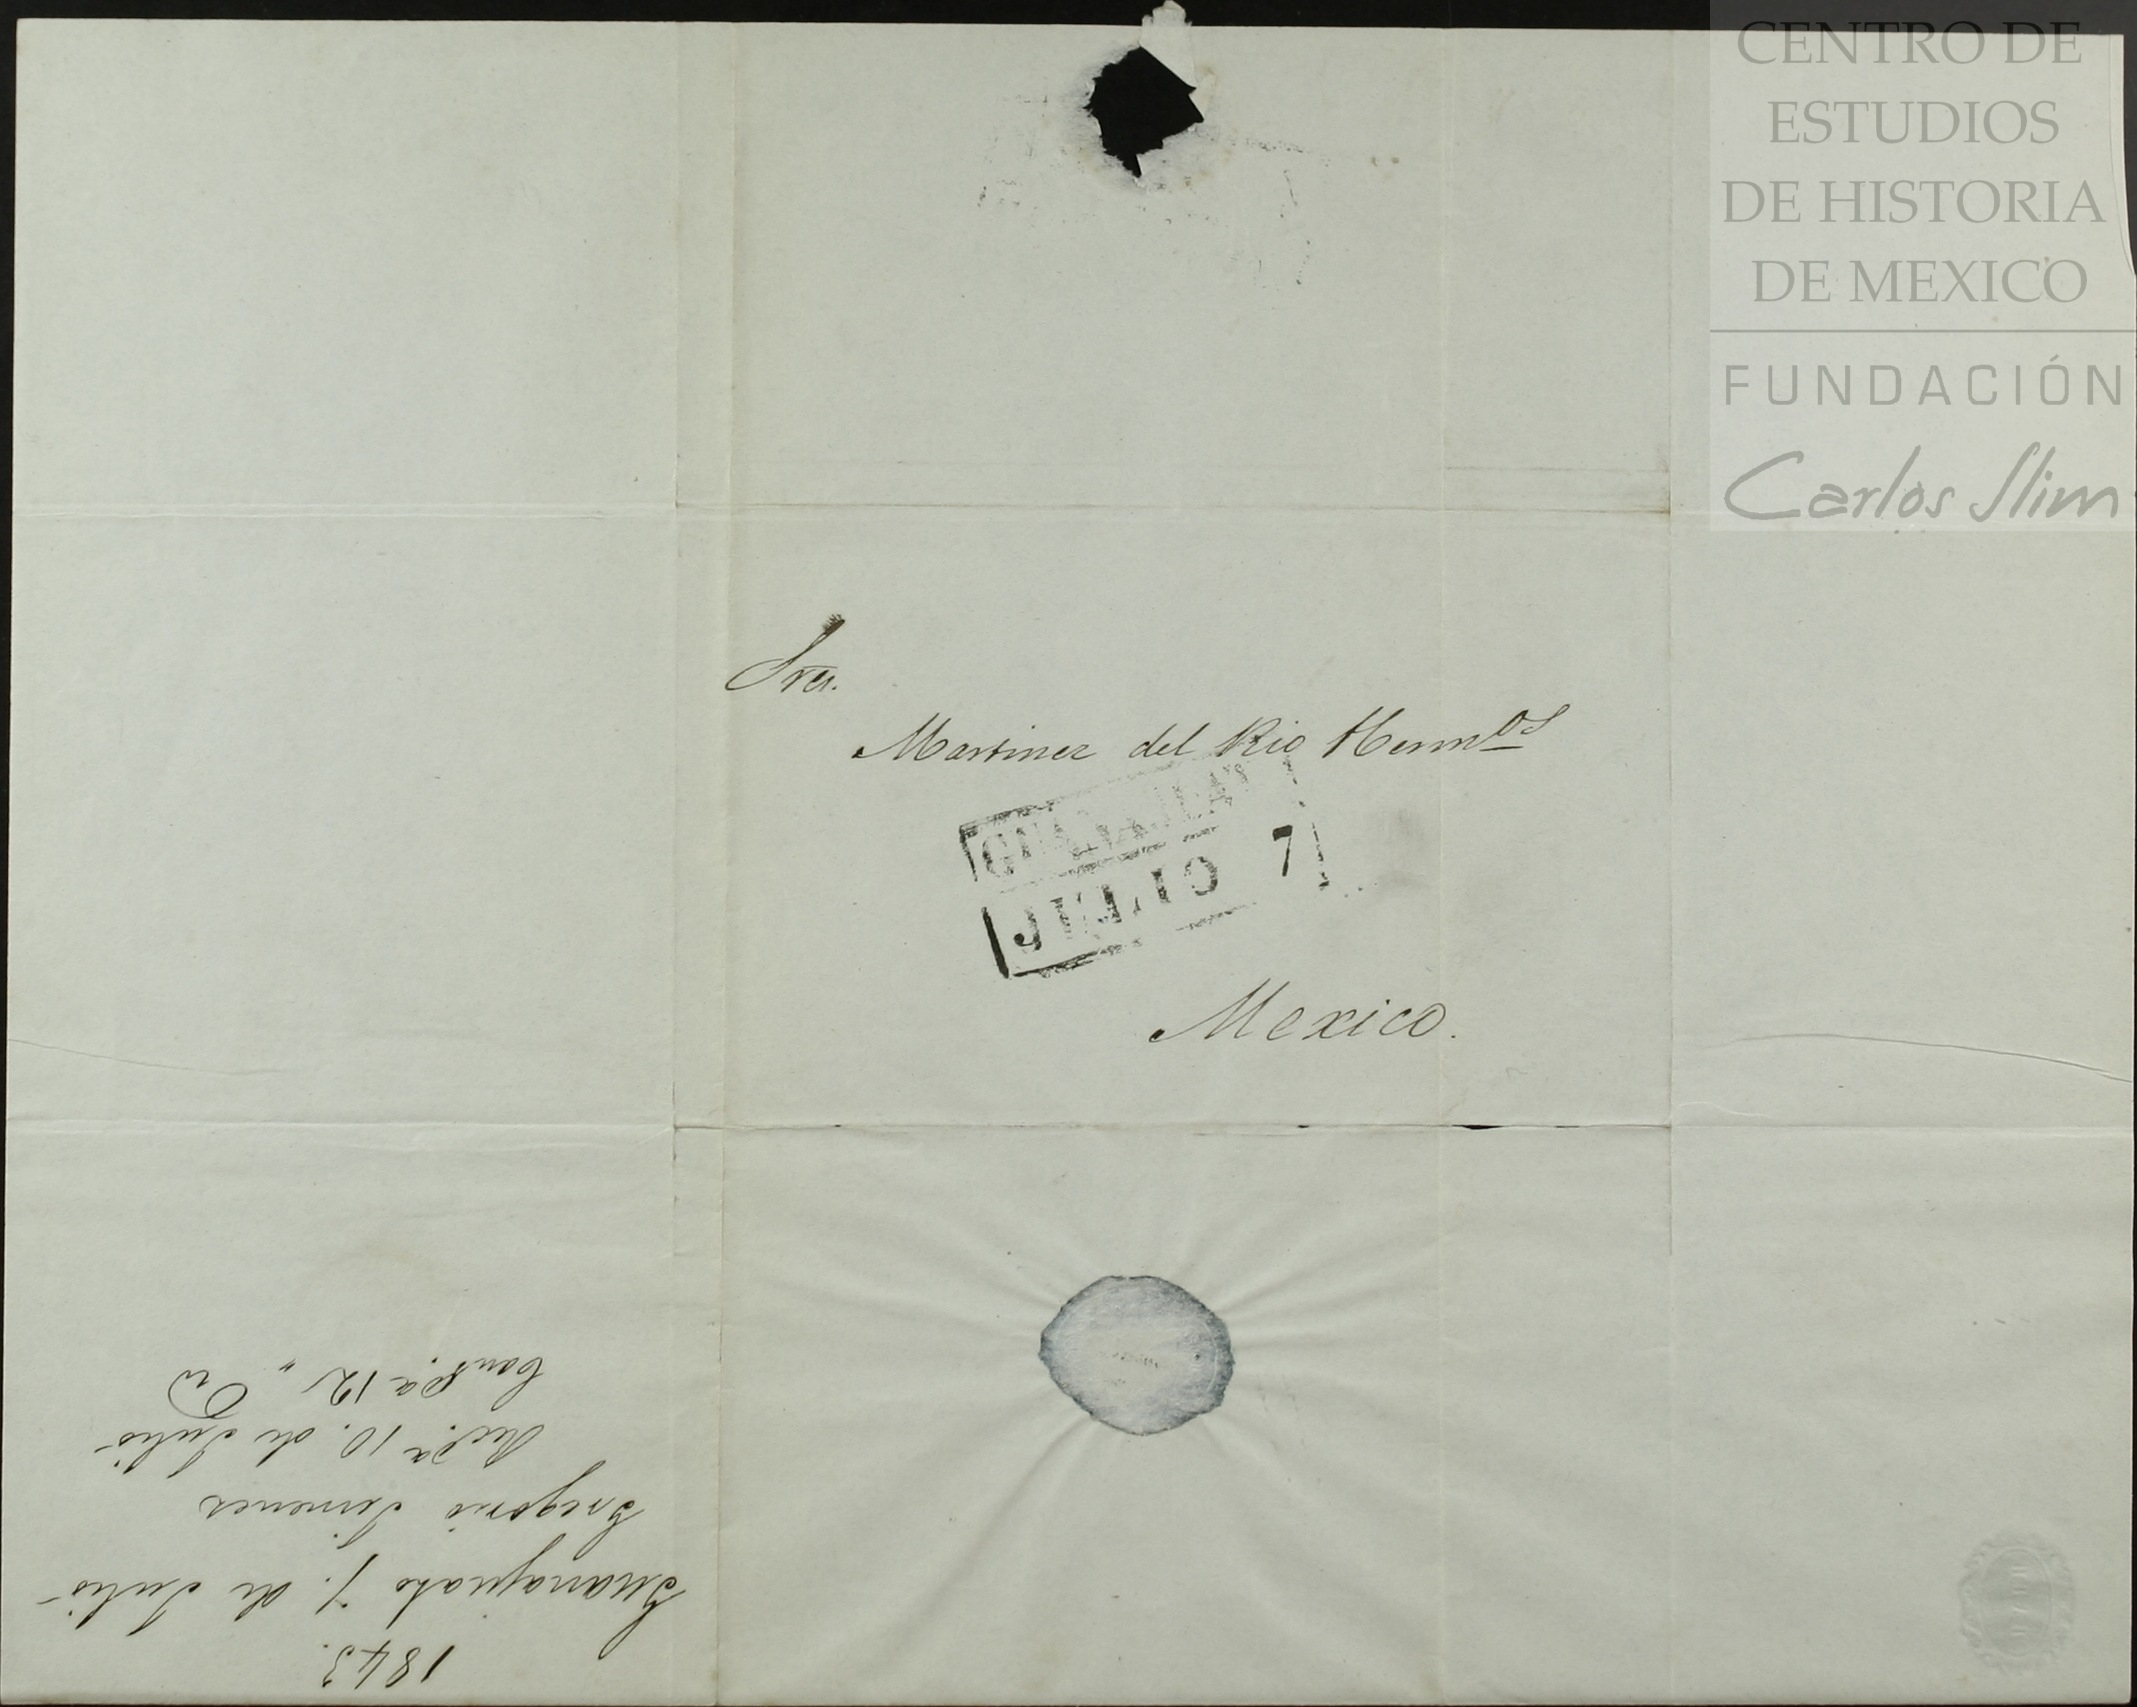 CENTRO DE
ESTUDIOS
DE HISTORIA
DE MEXICO
FUNDACIÓN
Carlos Slim
Sres.
Martinez del Rio Herm.os
GUANAJUATO
JULIO 7
Mexico.
1843.
Guanajuato 7. de Julio
Gregorio Jimenez
Rec.da 10. de Julio
Cont.da 12 "